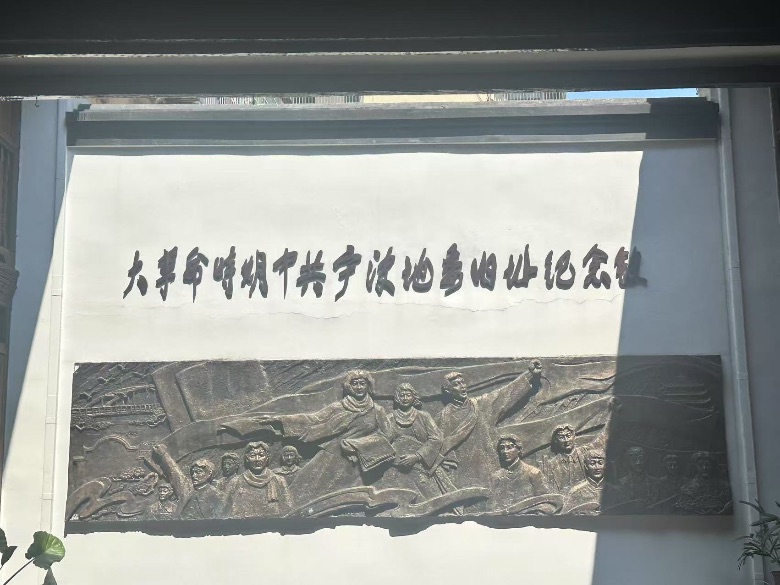 大革命時期中共宁波地委旧址纪念馆